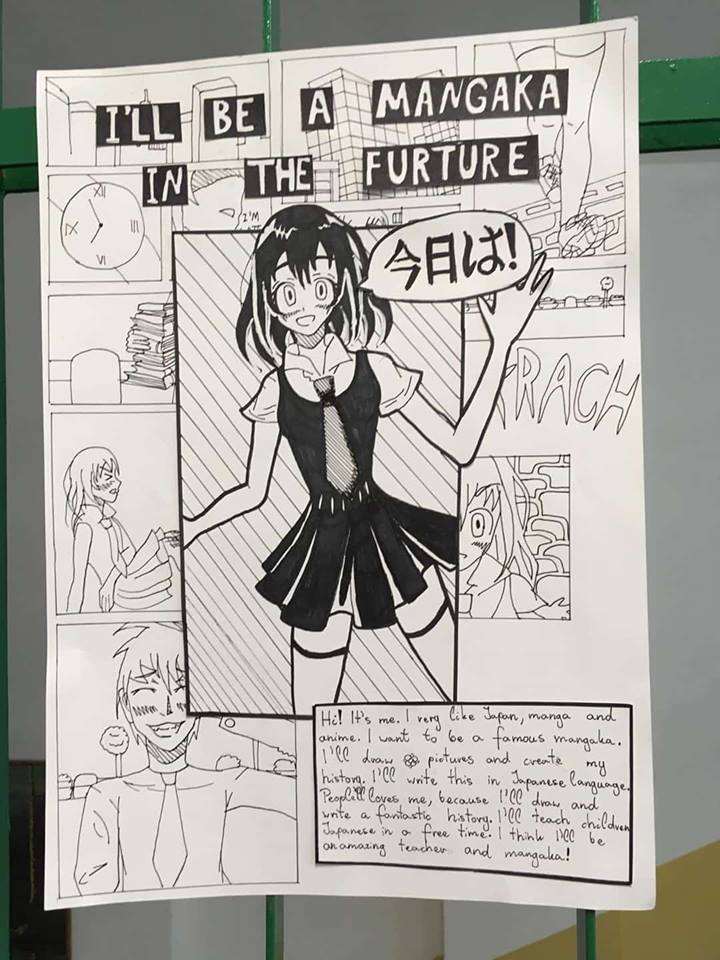 I'LL BE A MANGAKA
IN THE FURTURE
XII
IX
III
VI
I'M
今日は!
RACH
Hi! It's me. I very like Japan, manga and
anime. I want to be a famous mangaka.
I'll draw pictures and create my
history. I'll write this in Japanese language.
People'll loves me, because I'll draw and
write a fantastic history. I'll teach children
Japanese in a free time. I think I'll be
an amazing teacher and mangaka!